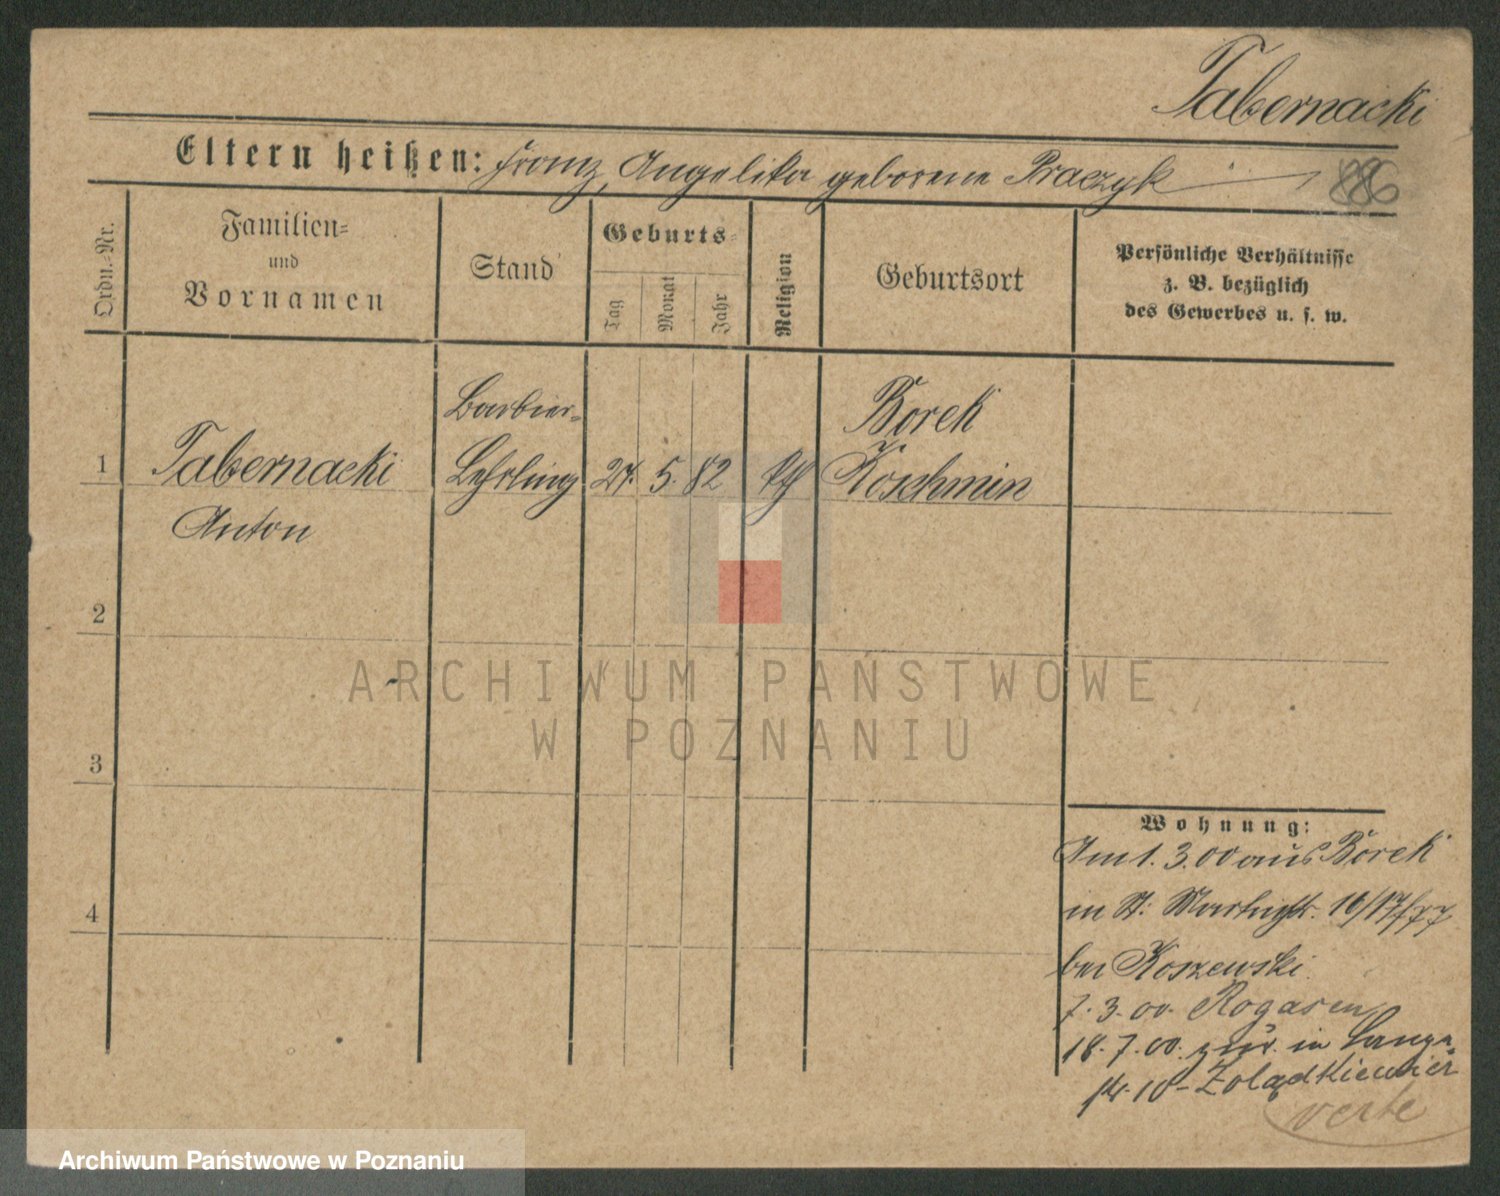 Tabernacki
Eltern heißen: Franz, Angelika geborene Praczyk
886
Ordn.-Nr.
Familien=
und
Vornamen
Stand
Geburts=
Tag
Monat
Jahr
Religion
Geburtsort
Persönliche Verhältnisse
z. B. bezüglich
des Gewerbes u. s. w.
1
Tabernacki
Anton
Barbier-
Lehrling
27. 5. 82
Borek
Koschmin
2
3
4
Wohnung:
Am 1. 3. 00 aus Borek
in St: Martinstr. 16/17
bei Koszewski
7. 3. 00. Rogasen
18. 7. 00. zur. in Lange
str. 10 - Zolądkiewicz
verte
ARCHIWUM PAŃSTWOWE
W POZNANIU
Archiwum Państwowe w Poznaniu